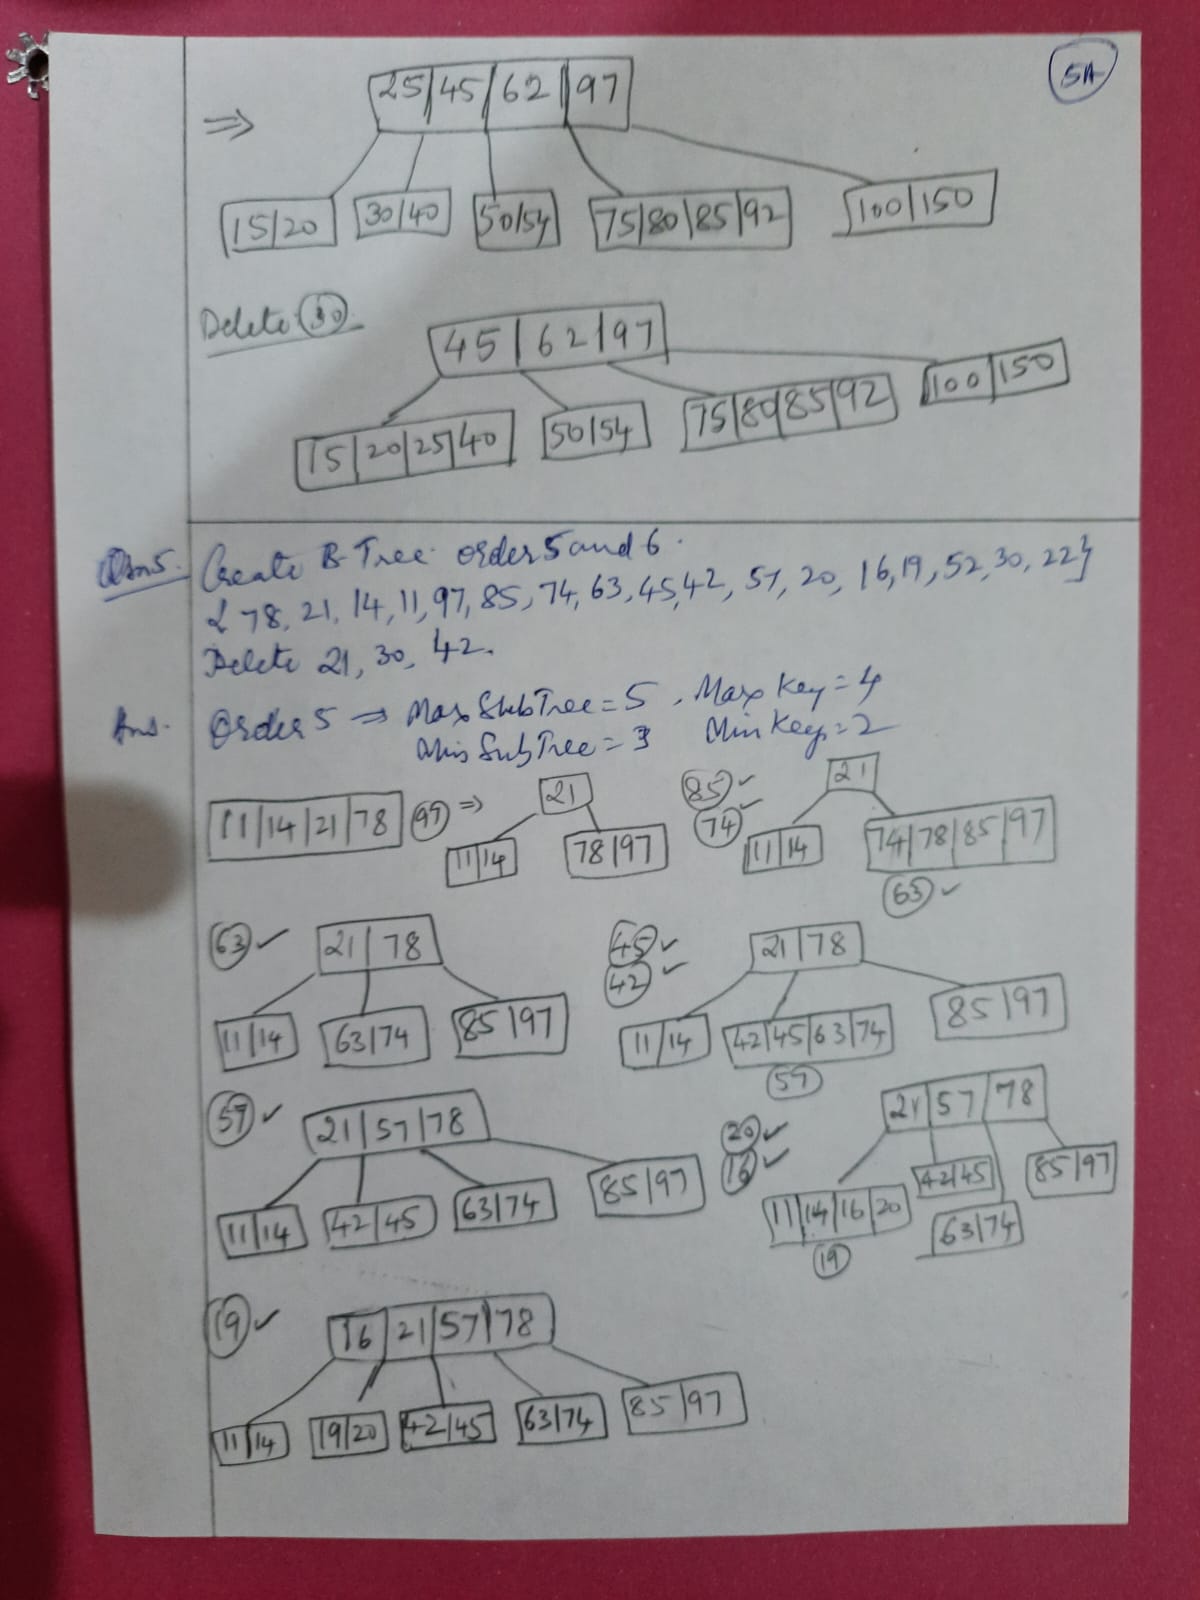 5A
⇒ 25|45|62|97
15|20 30|40 50|54 75|80|85|92 100|150
Delete 30
45|62|97
15|20|25|40 50|54 75|80|85|92 100|150
Qsn5. Create B-Tree order 5 and 6.
{ 78, 21, 14, 11, 97, 85, 74, 63, 45, 42, 57, 20, 16, 19, 52, 30, 22}
Delete 21, 30, 42.
Ans. Order 5 ⇒ Max SubTree = 5, Max Key = 4
Min SubTree = 3 Min Key = 2
11|14|21|78 97 ⇒ 21
11|14 78|97
85 ✓ 21
74 ✓ 11|14 74|78|85|97
63 ✓
63 ✓ 21|78
11|14 63|74 85|97
45 ✓ 21|78
42 ✓
11|14 42|45|63|74 85|97
57
57 ✓ 21|57|78
11|14 42|45 63|74 85|97
20 ✓ 21|57|78
16 ✓
11|14|16|20 42|45 63|74 85|97
19
19 ✓ 16|21|57|78
11|14 19|20 42|45 63|74 85|97